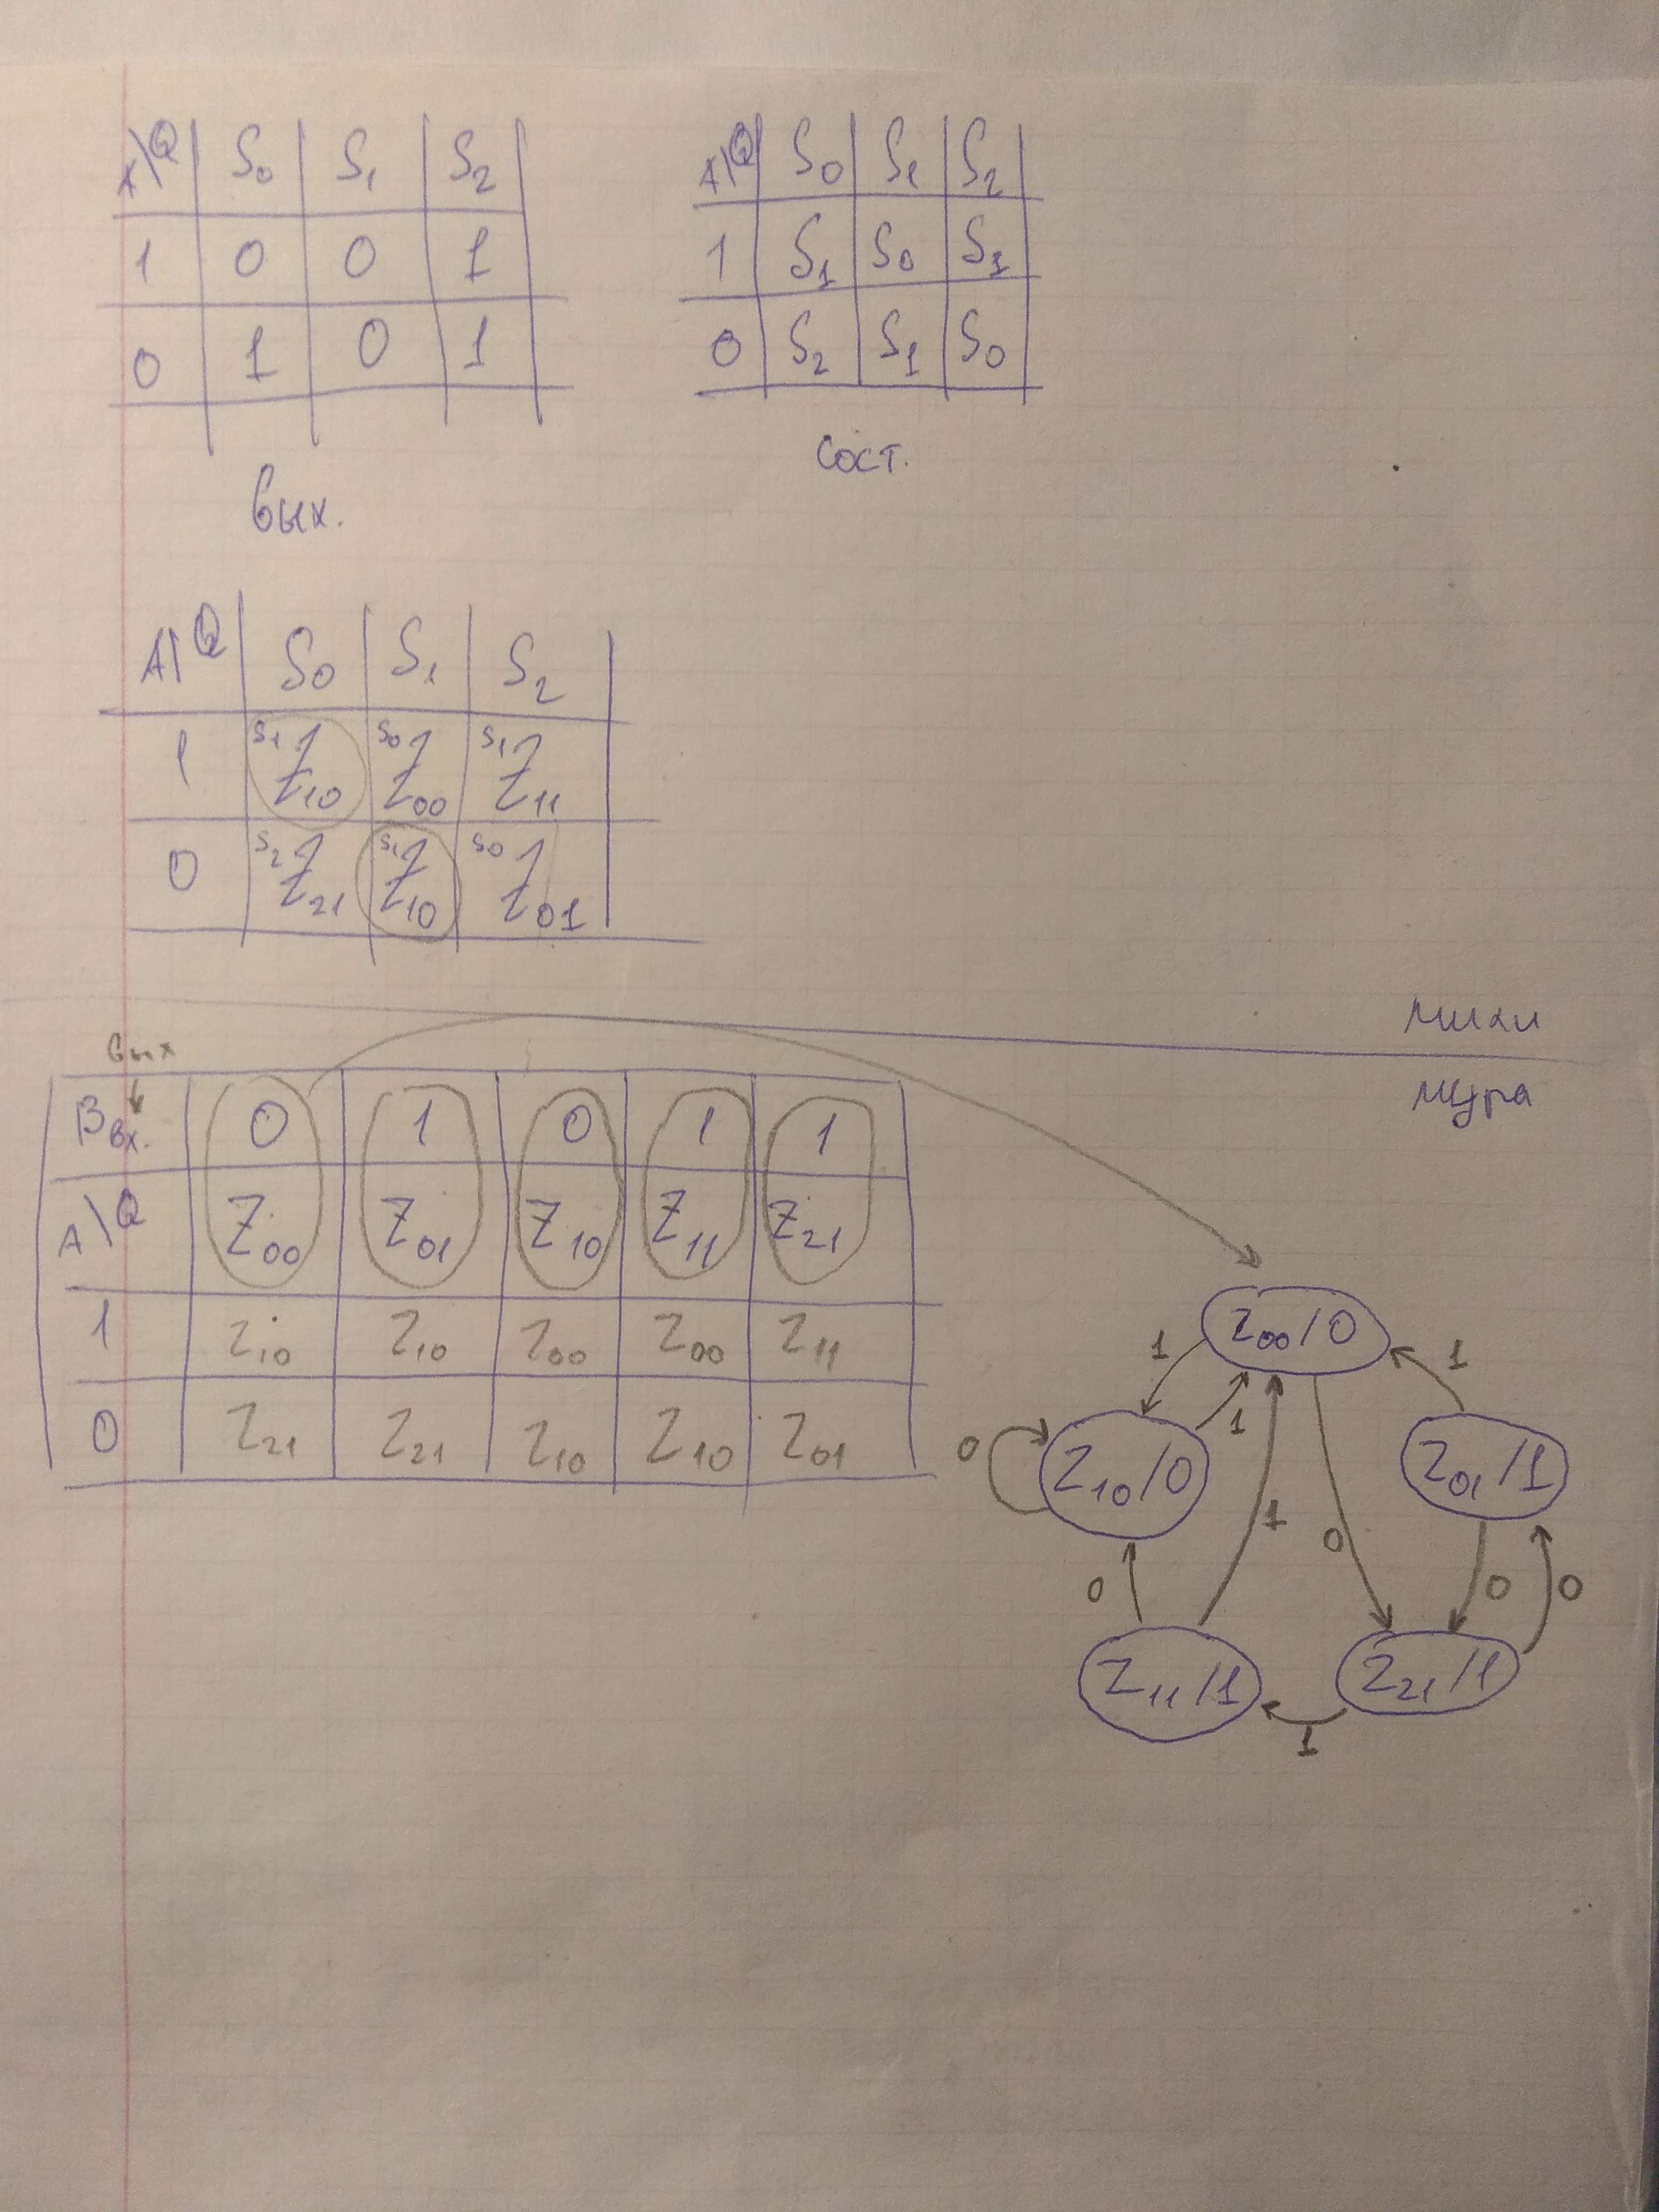 A\Q S₀ S₁ S₂
1 0 0 1
0 1 0 1
вых.
A\Q S₀ S₁ S₂
1 S₁ S₀ S₁
0 S₂ S₁ S₀
сост.
A\Q S₀ S₁ S₂
1 S₁ Z₁₀ S₀ Z₀₀ S₁ Z₁₁
0 S₂ Z₂₁ S₁ Z₁₀ S₀ Z₀₁
мили
мура
вых
Bвх. 0 1 0 1 1
A\Q Z₀₀ Z₀₁ Z₁₀ Z₁₁ Z₂₁
1 Z₁₀ Z₁₀ Z₀₀ Z₀₀ Z₁₁
0 Z₂₁ Z₂₁ Z₁₀ Z₁₀ Z₀₁
Z₀₀/0
1 1
1
0 Z₁₀/0 Z₀₁/1
1 0
0 0 0
Z₁₁/1 Z₂₁/1
1